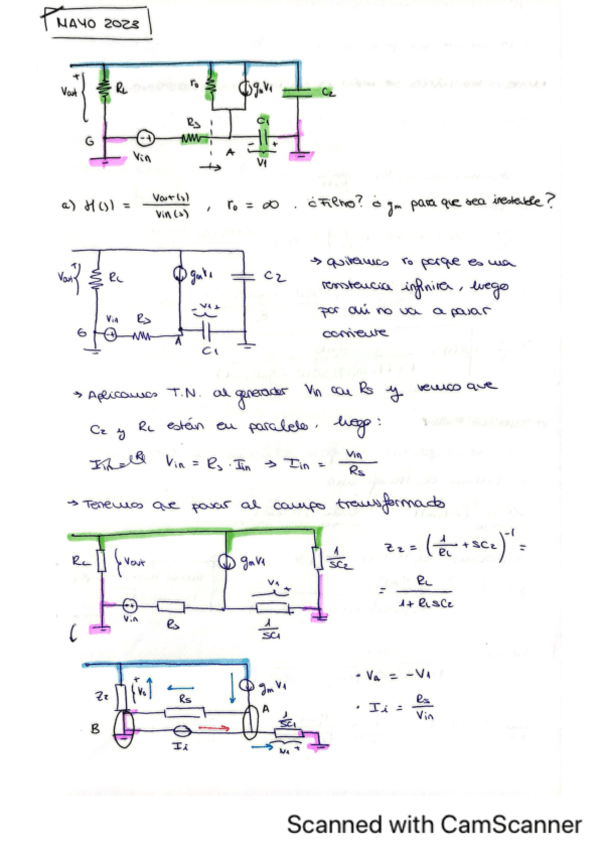 MAYO 2023
+
Vout
RL
ro
gmV1
C2
G
Vin
Rs
A
C1
- +
V1
a) H(s) = Vout(s) / Vin(s) , ro = ∞ . ¿Filtro? ¿gm para que sea inestable?
+
Vout
RL
gmV1
C2
G
Vin
Rs
A
- V1 +
C1
→ quitamos ro porque es una
resistencia infinita, luego
por ahí no va a pasar
corriente
→ Aplicamos T.N. al generador Vin con Rs y vemos que
C2 y RL están en paralelo, luego:
Vin = Rs · Iin → Iin = Vin / Rs
→ Tenemos que pasar al campo transformado
RL
Vout
gmV1
1/SC2
Vin
Rs
V1 +
1/SC1
Z2 = (1/RL + SC2)^-1 =
= RL / 1 + RLSC2
Z2
+
gmV1
Rs
A
B
Ii
1/SC1
V1 +
· Va = -V1
· Ii = Rs / Vin
Scanned with CamScanner